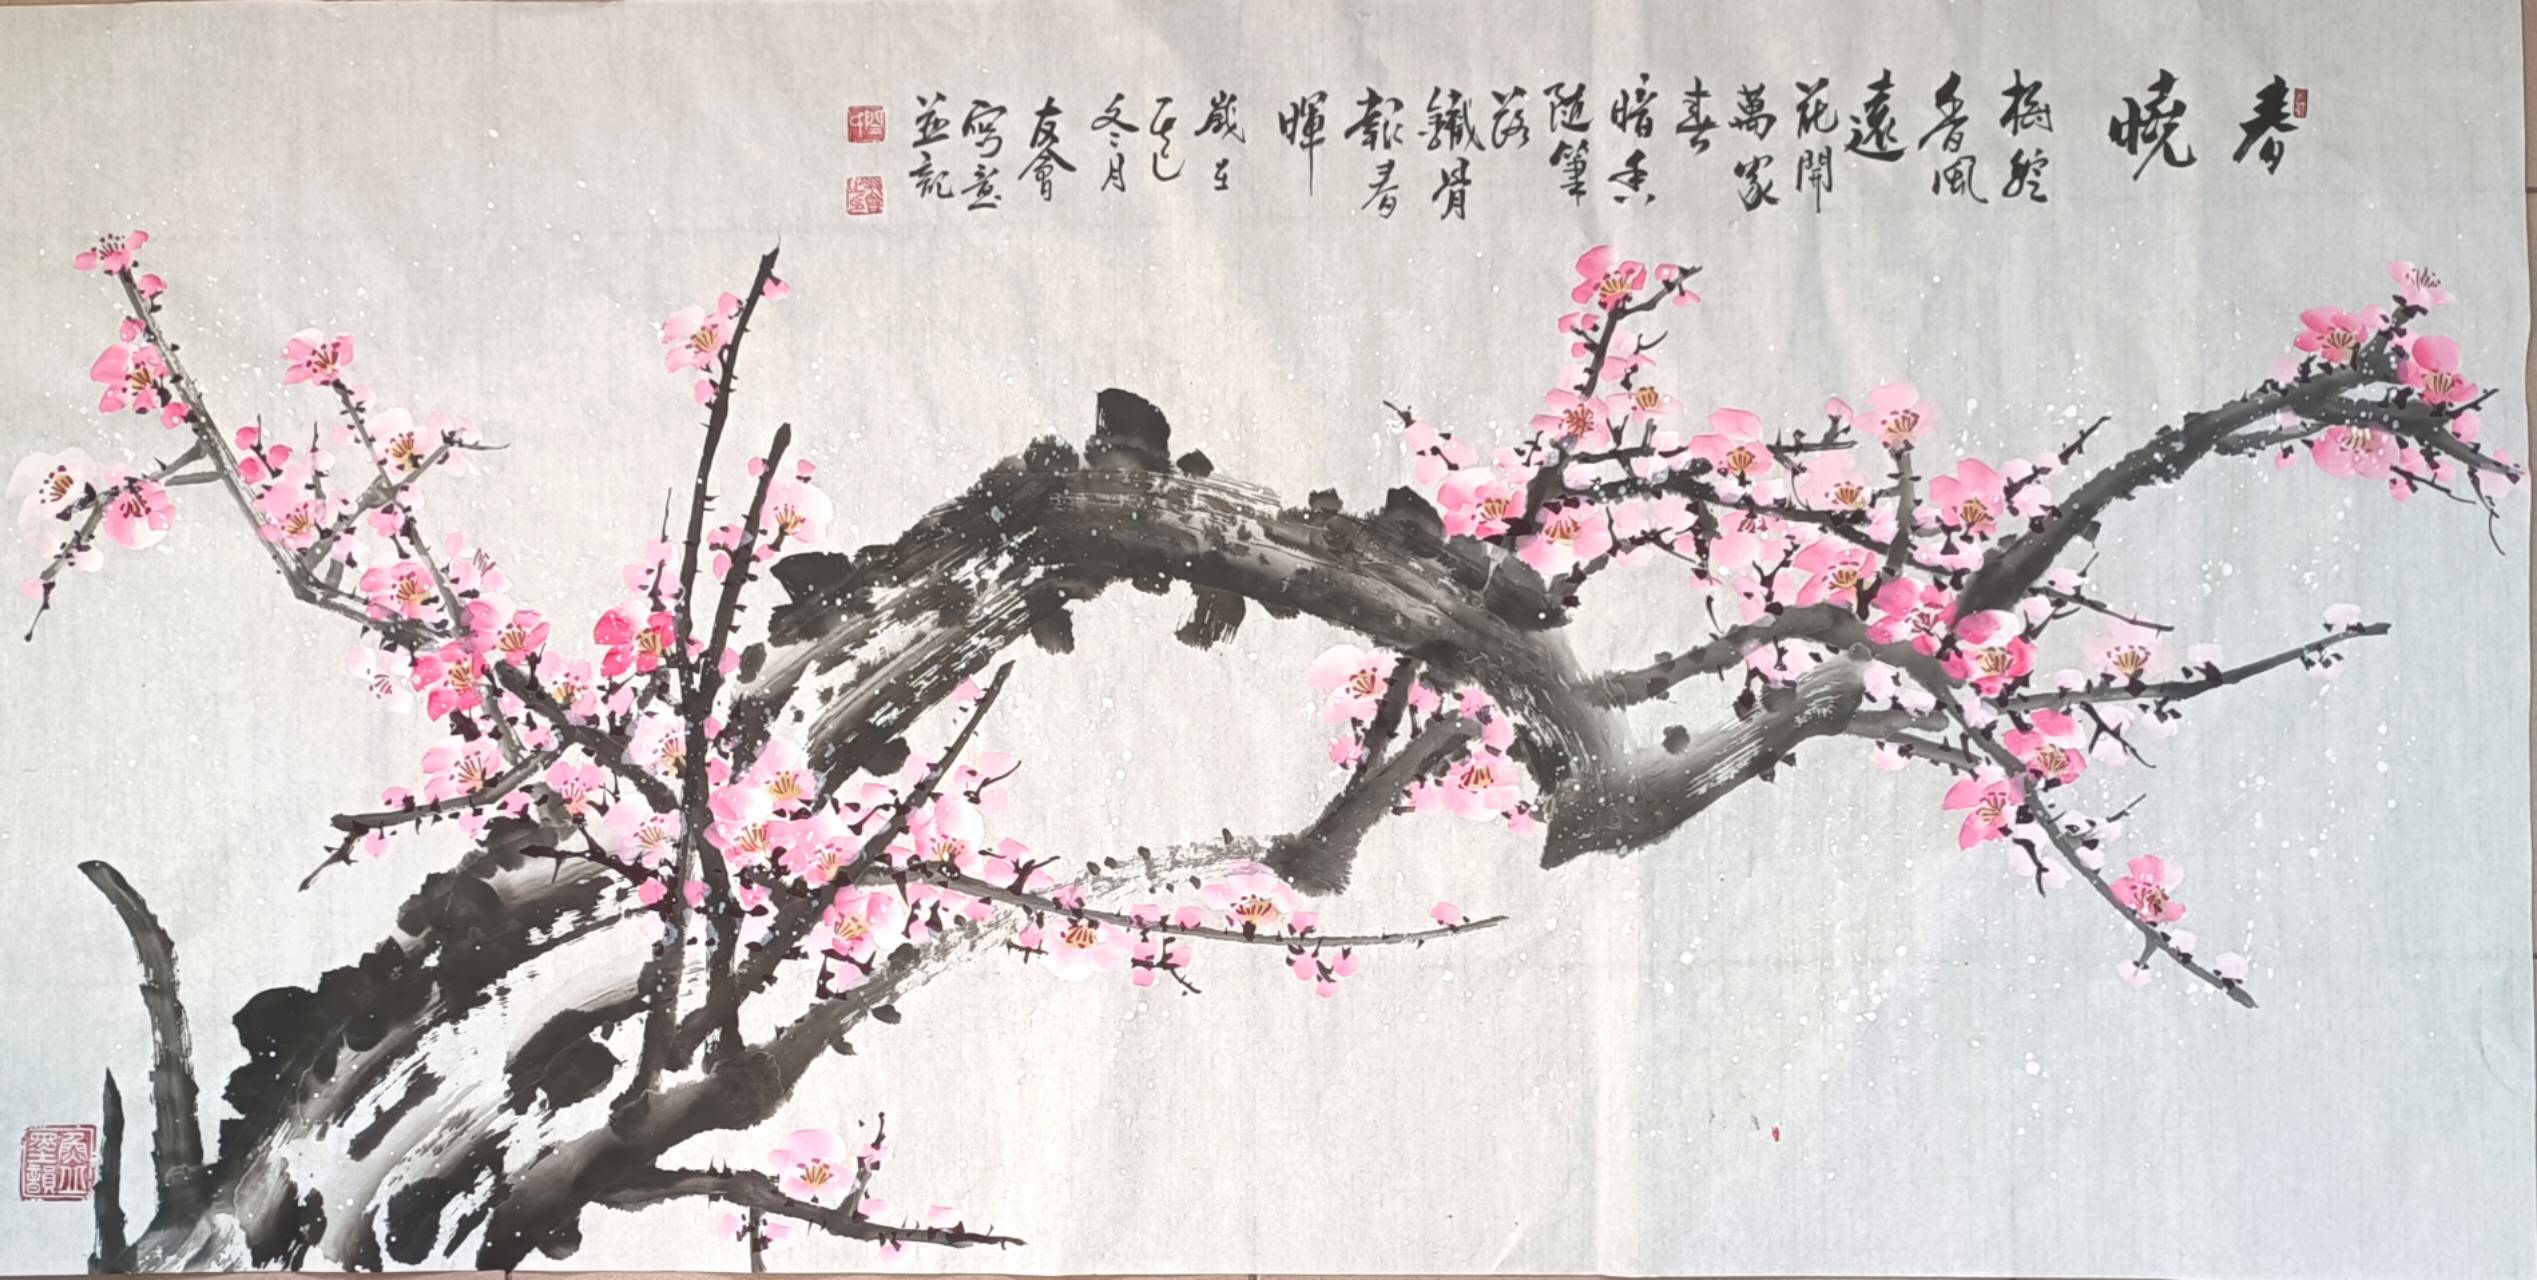 春
曉
樹綻
香風
遠
花開
萬家
春
暗香
隨筆
落
鐵骨
報春
暉
歲在
乙巳
冬月
友會
寫意
並記
墨韻